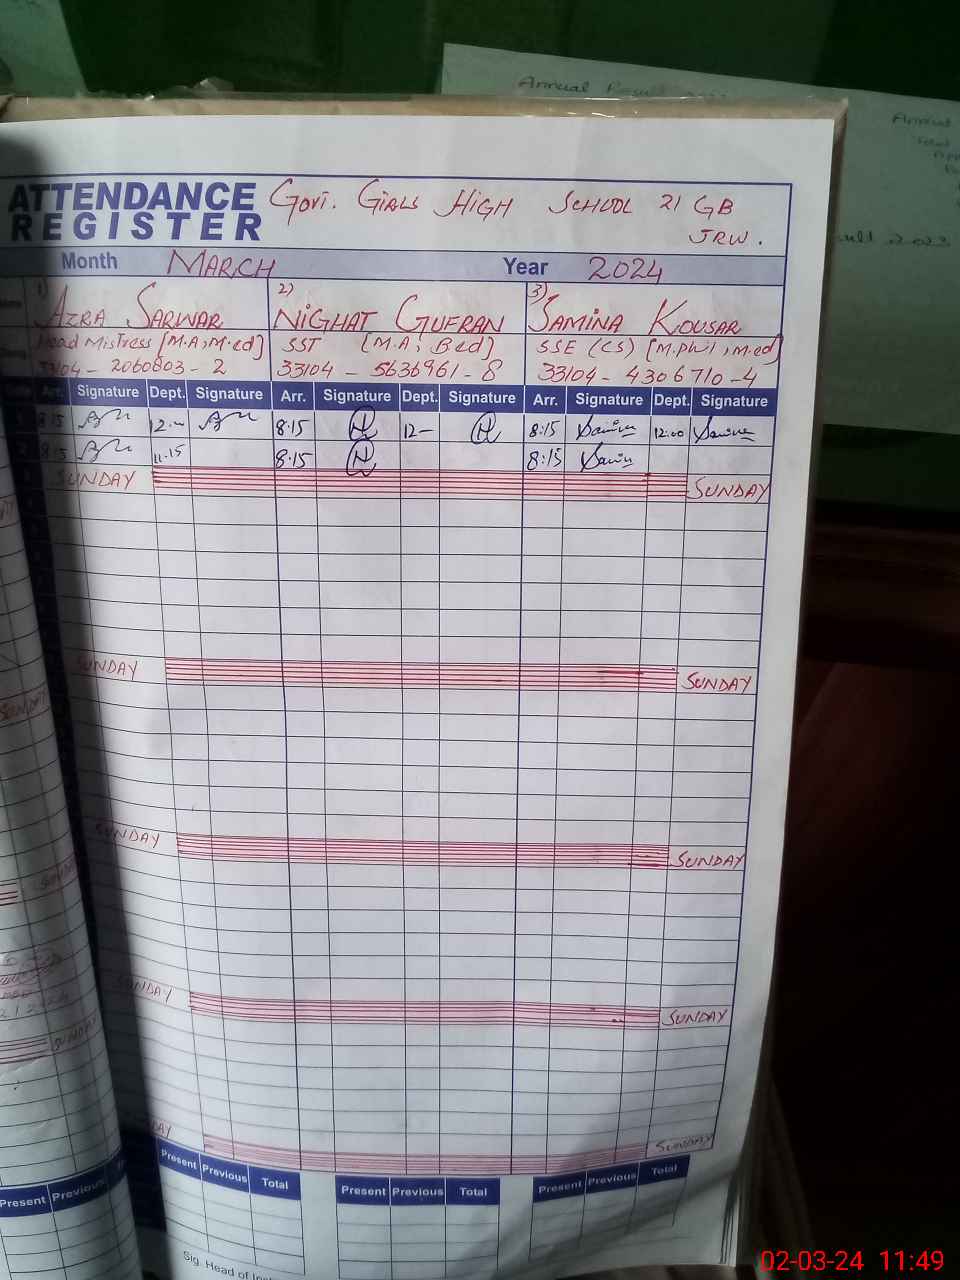 Annual Result
Annual
ult 2023
ATTENDANCE
REGISTER
Govt. Girls High School 21 GB
JRW.
Month MARCH Year 2024
1) 2) 3)
AZRA SARWAR NIGHAT GUFRAN SAMINA KOUSAR
Head Mistress [M.A, M.ed] SST [M.A, B.ed] SSE (CS) [M.phil, M.ed]
33104 - 2060803 - 2 33104 - 5636961 - 8 33104 - 4306710 - 4
Arr. Signature Dept. Signature Arr. Signature Dept. Signature Arr. Signature Dept. Signature
8:15 12:00 8:15 12- 8:15 Samina 12:00 Samina
8:15 11:15 8:15 8:15 Samina
SUNDAY SUNDAY
SUNDAY SUNDAY
SUNDAY SUNDAY
SUNDAY SUNDAY
DAY SUNDAY
Present Previous Total Present Previous Total Present Previous Total
Present Previous
Sig. Head of
02-03-24 11:49